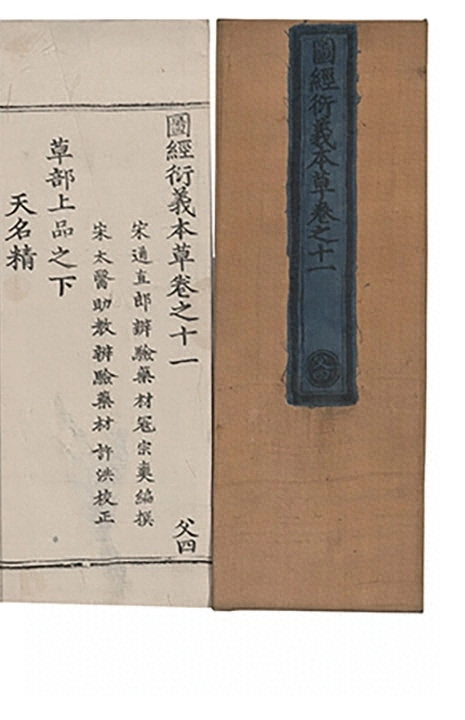 圖經衍義本草卷之十一
父四
圖經衍義本草卷之十一
宋通直郎辨驗藥材寇宗奭編撰
宋太醫助教辨驗藥材許洪校正
父四
草部上品之下
天名精